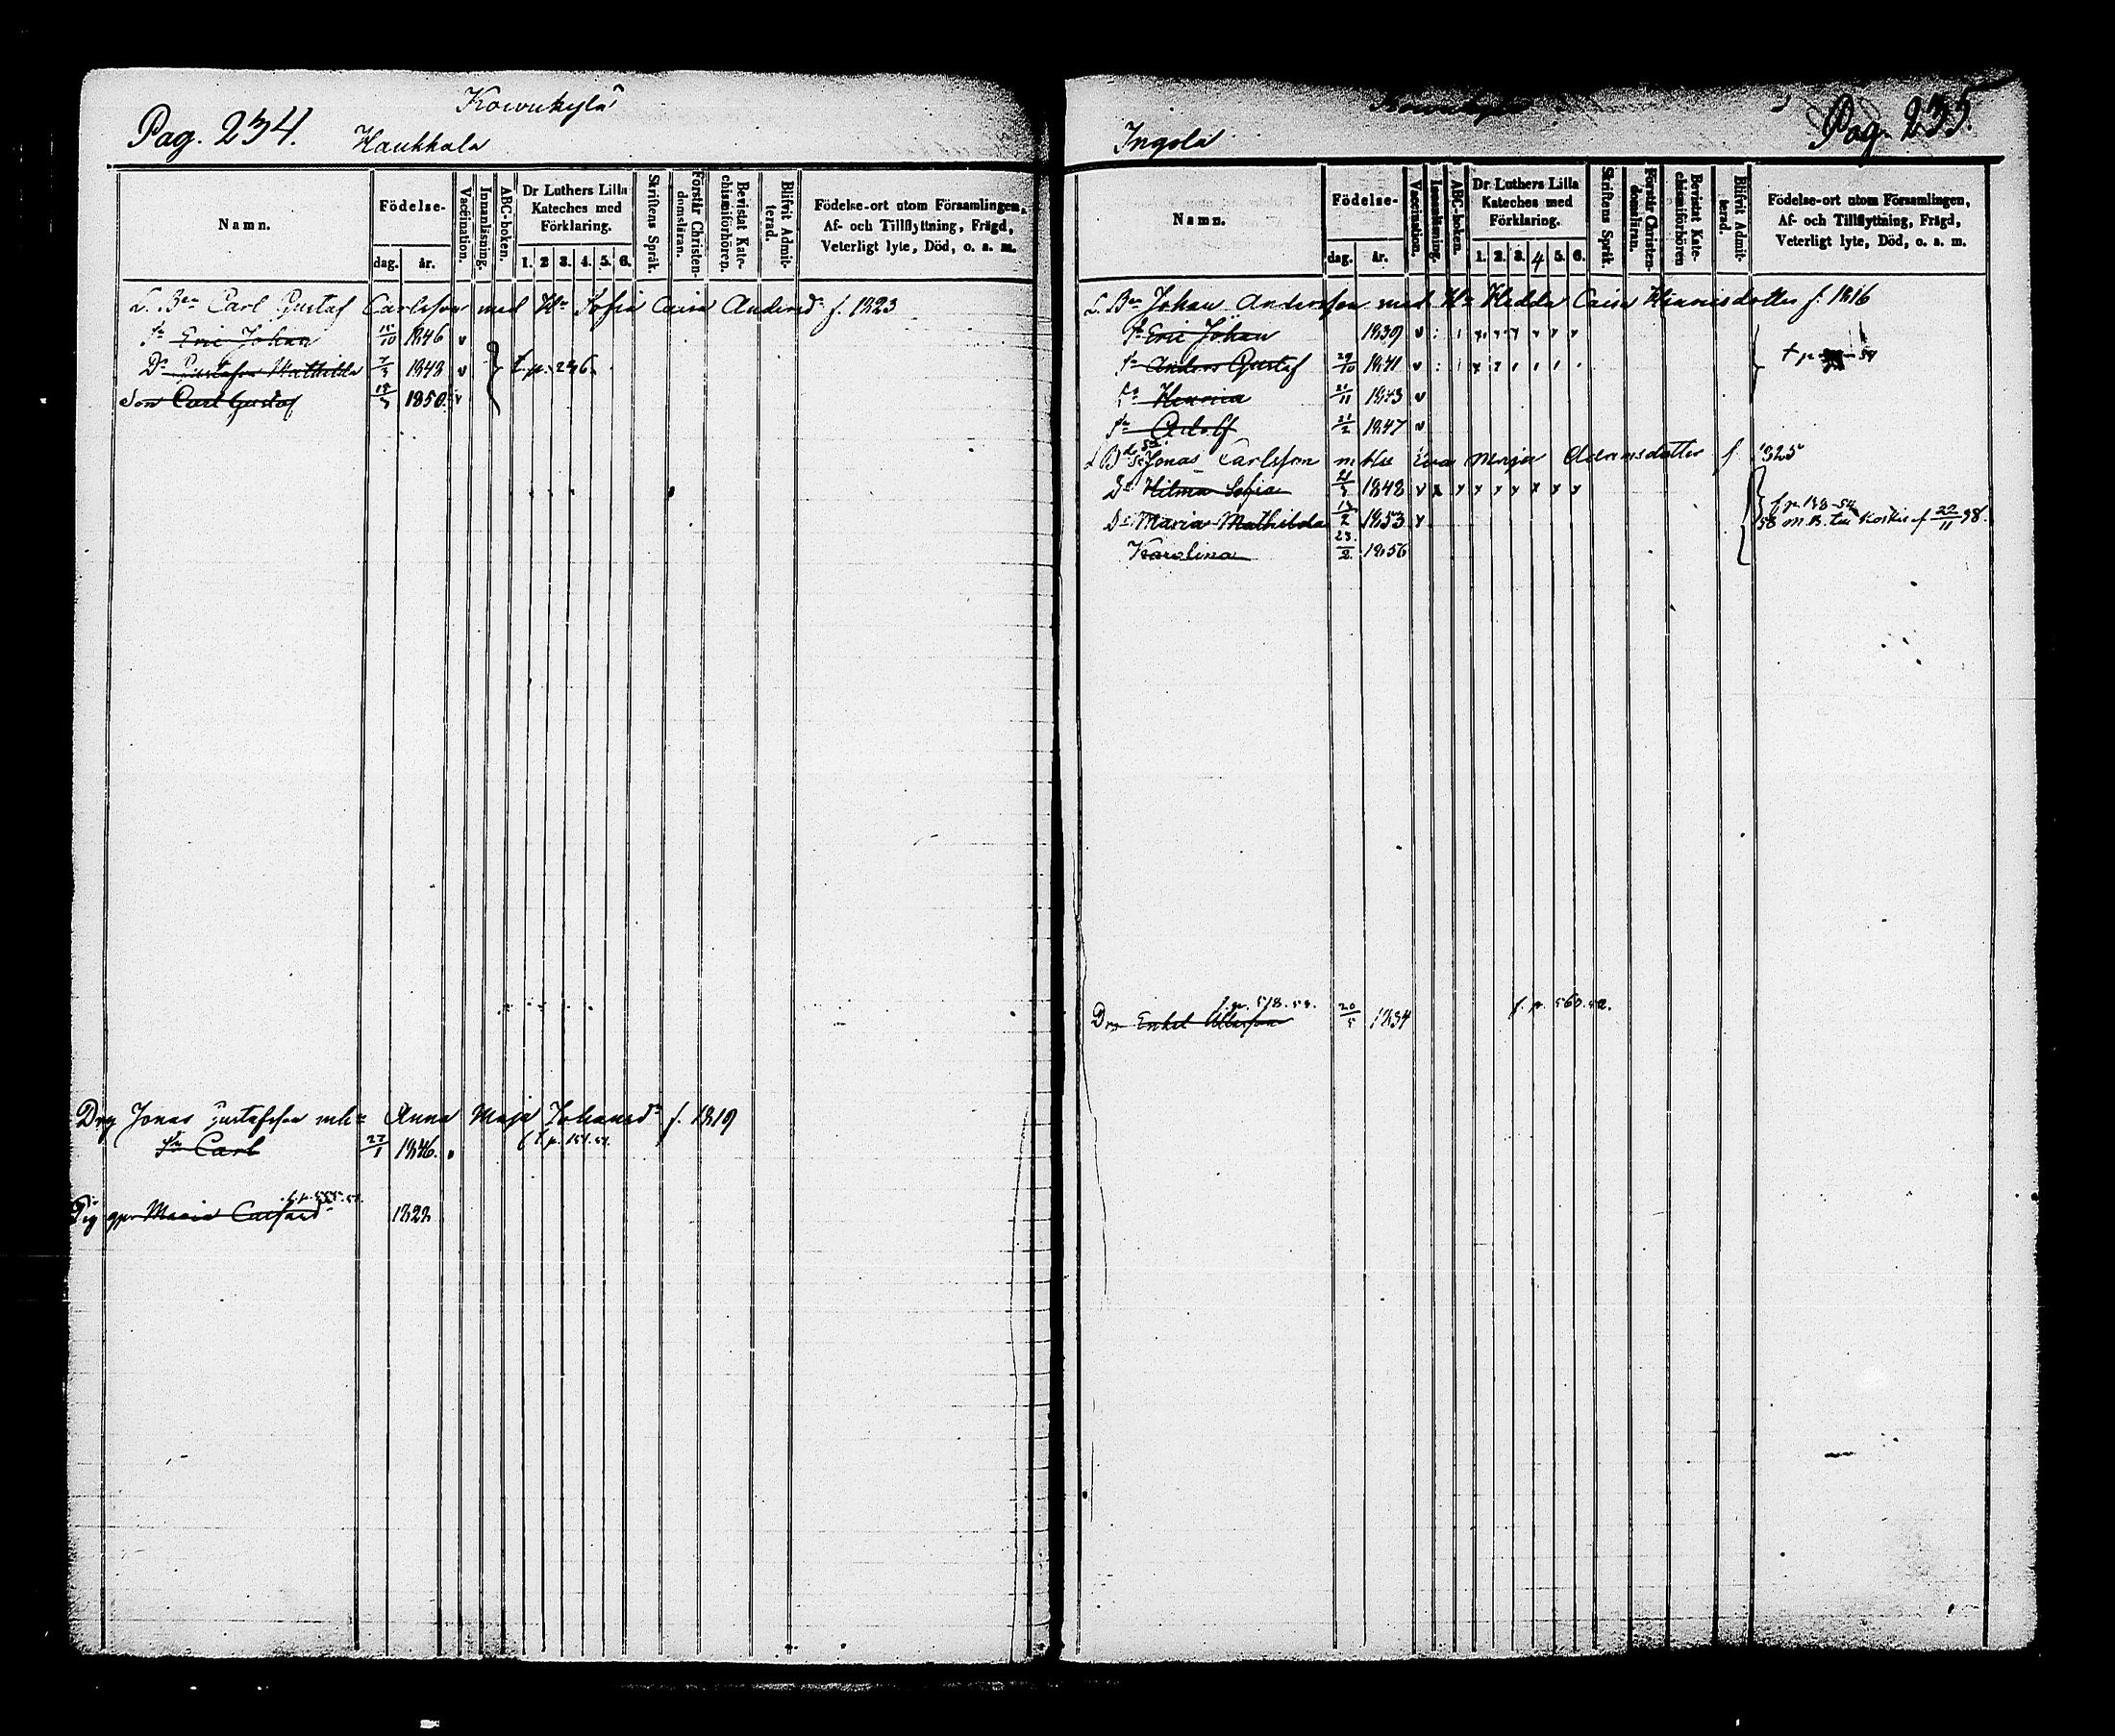 Pag. 234.
Kowukylä
Haukkala
Namn.
Födelse-
dag.
år.
Vaccination.
Innanläsning.
ABC-boken.
Dr Luthers Lilla
Kateches med
Förklaring.
1. 2 3. 4. 5. 6.
Skriftens Språk.
Förstår Christen-
domsläran.
Bevistat Kate-
chismiförhören.
Blifvit Admit-
terad.
Födelse-ort utom Församlingen,
Af- och Tillflyttning, Frägd,
Veterligt lyte, Död, o. s. m.
L. Bn Carl Gustaf Carlsson med Hu Sofia Caisa Andersdr f. 1823
Sn Eric Johan 1846 v
Dr Gustafva Mathilda 1848 v t. p. 236.
Son Carl Gustaf 1850 v
Drg Jonas Gustafsson mhu Anna Maja Johansdr f. 1819
Sn Carl 27/1 1846. t. p. 151.51.
Pig Maria 1822
Pag. 235.
Ingola
Namn.
Födelse-
dag.
år.
Vaccination.
Innanläsning.
ABC-boken.
Dr Luthers Lilla
Kateches med
Förklaring.
1. 2. 3. 4 5. 6.
Skriftens Språk.
Förstår Christen-
domsläran.
Bevistat Kate-
chismiförhören
Blifvit Admit-
terad.
Födelse-ort utom Församlingen,
Af- och Tillflyttning, Frägd,
Veterligt lyte, Död, o. s. m.
L. Bn Johan Andersson med Hu Hedda Caisa Henricsdotter f. 1816
Sn Eric Johan 1839 v
Sn Anders Gustaf 29/10 1841 v
Sn Henric 21/11 1843 v
Sn Adolf 21/2 1847 v
Jonas Carlsson m hu Eva Maja Adamsdotter f 1825
Dr Hilma Sofia 1848 v x
Dr Maria Mathilda 13/2 1853 v
Karolina 23/2 1856
f. p. 518.
Drg Enkel 20/5 1834 f. p. 560.